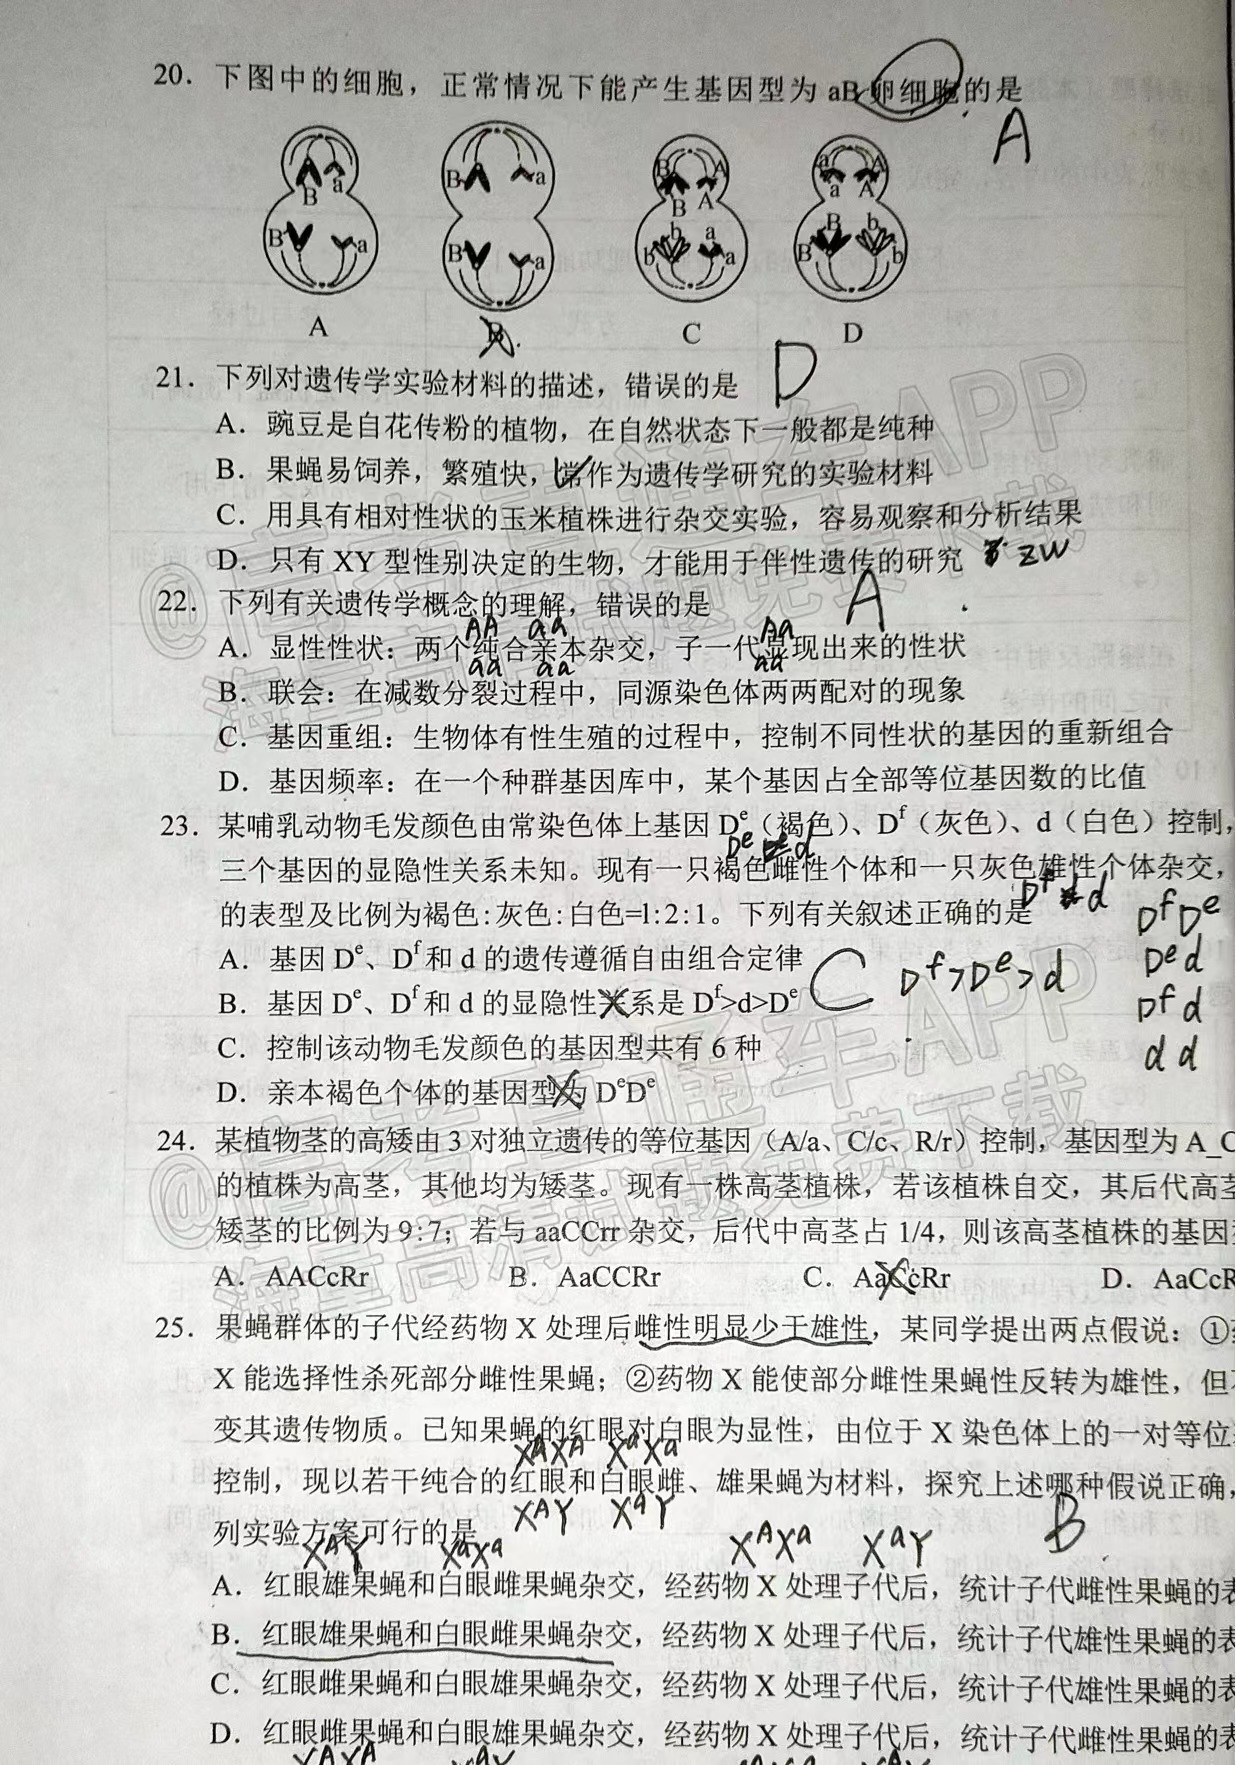 20．下图中的细胞，正常情况下能产生基因型为 aB 卵细胞的是
A
B a B a B A a A
B B A a A
B a B a b a B b
b a B b
A B C D
21．下列对遗传学实验材料的描述，错误的是 D
A．豌豆是自花传粉的植物，在自然状态下一般都是纯种
B．果蝇易饲养，繁殖快，常作为遗传学研究的实验材料
C．用具有相对性状的玉米植株进行杂交实验，容易观察和分析结果
D．只有 XY 型性别决定的生物，才能用于伴性遗传的研究 ZW
22．下列有关遗传学概念的理解，错误的是 A
AA aa Aa
A．显性性状：两个纯合亲本杂交，子一代显现出来的性状
aa aa aa
B．联会：在减数分裂过程中，同源染色体两两配对的现象
C．基因重组：生物体有性生殖的过程中，控制不同性状的基因的重新组合
D．基因频率：在一个种群基因库中，某个基因占全部等位基因数的比值
23．某哺乳动物毛发颜色由常染色体上基因 Dᵉ（褐色）、Dᶠ（灰色）、d（白色）控制，
Dᵉ d
三个基因的显隐性关系未知。现有一只褐色雌性个体和一只灰色雄性个体杂交，
Dᶠ d
的表型及比例为褐色:灰色:白色=1:2:1。下列有关叙述正确的是
DᶠDᵉ
Dᵉd
Dᶠd
dd
A．基因 Dᵉ、Dᶠ 和 d 的遗传遵循自由组合定律
C Dᶠ>Dᵉ>d
B．基因 Dᵉ、Dᶠ 和 d 的显隐性关系是 Dᶠ>d>Dᵉ
C．控制该动物毛发颜色的基因型共有 6 种
D．亲本褐色个体的基因型为 DᵉDᵉ
24．某植物茎的高矮由 3 对独立遗传的等位基因（A/a、C/c、R/r）控制，基因型为 A_C
的植株为高茎，其他均为矮茎。现有一株高茎植株，若该植株自交，其后代高茎
矮茎的比例为 9:7；若与 aaCCrr 杂交，后代中高茎占 1/4，则该高茎植株的基因
A．AACcRr B．AaCCRr C．AaCcRr D．AaCcR
25．果蝇群体的子代经药物 X 处理后雌性明显少于雄性，某同学提出两点假说：①
X 能选择性杀死部分雌性果蝇；②药物 X 能使部分雌性果蝇性反转为雄性，但
变其遗传物质。已知果蝇的红眼对白眼为显性，由位于 X 染色体上的一对等位
XᴬXᴬ XᵃXᵃ
控制，现以若干纯合的红眼和白眼雌、雄果蝇为材料，探究上述哪种假说正确，
XᴬY XᵃY
列实验方案可行的是 B
XᴬY XᵃXᵃ XᴬXᵃ XᵃY
A．红眼雄果蝇和白眼雌果蝇杂交，经药物 X 处理子代后，统计子代雌性果蝇的表
B．红眼雄果蝇和白眼雌果蝇杂交，经药物 X 处理子代后，统计子代雄性果蝇的表
C．红眼雌果蝇和白眼雄果蝇杂交，经药物 X 处理子代后，统计子代雄性果蝇的表
D．红眼雌果蝇和白眼雄果蝇杂交，经药物 X 处理子代后，统计子代雌性果蝇的表
XᴬXᴬ
@高考直通车APP
海量高清试题免费下载
@高考直通车APP
海量高清试题免费下载